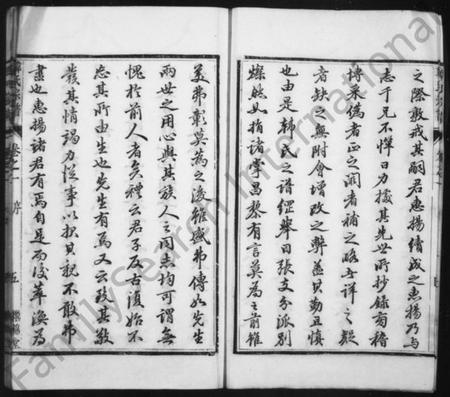 之際敦戒其嗣君惠揚續成之惠揚乃與
志千兄不憚日力據其先世所抄錄旁稽
博采偽者正之闕者補之略者詳之疑
者缺之無附會增改之弊蓋其勤且慎
也由是韓氏之譜繼舉目張支分派別
燦然如指諸掌昌黎有言莫為之前雖
美弗彰莫為之後雖盛弗傳如先生
兩世之用心與其族人之同志均可謂無
愧於前人者矣禮云君子反古復始不
忘其所由生也先生有焉又云致其敬
發其情竭力從事以報其親不敢弗
盡也惠揚諸君有焉自是而後萃渙為
卷之一
序
五
FamilySearch International